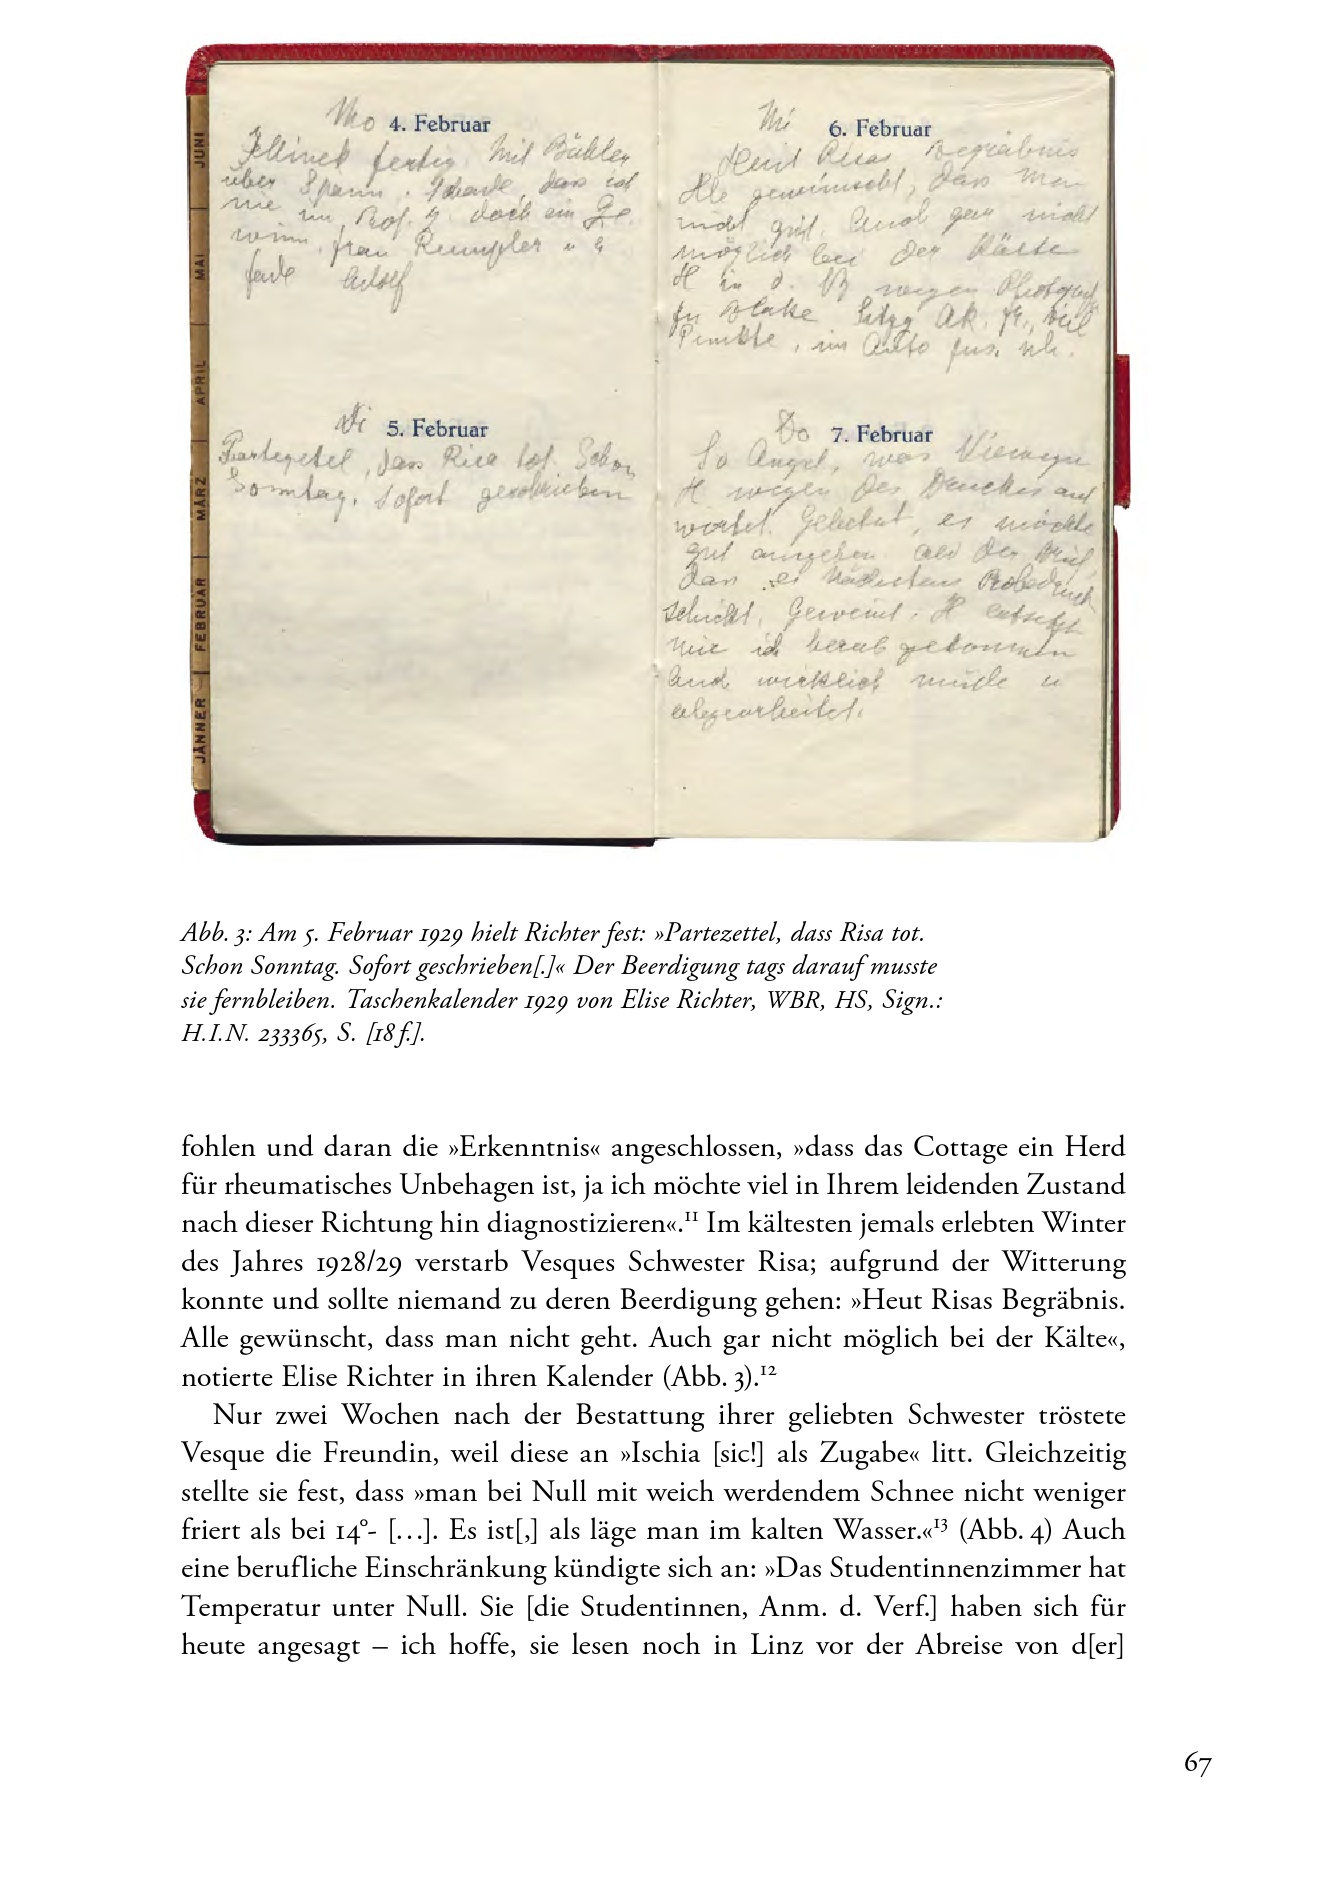 Mo 4. Februar
fertig. Mit Bühler
über Spann. Schade, dass ich
nie im Prof. Z. doch ein Ge
winn. Frau Rumpler u a
fade Adolf
Di 5. Februar
Partezetel, dass Risa tot. Schon
Sonntag. Sofort geschrieben
Mi 6. Februar
Heut Risas Begräbnis
Alle gewünscht, dass man
nicht geht. Auch gar nicht
möglich bei der Kälte
H in d. wegen
Ak. viel
Punkte, im Auto
Do 7. Februar
So Angst, was
H wegen des Druckes ant
wortet. Gebetet, es möchte
gut ausgehen
dass er nächstens Probedruck
schickt. Geweint. H entsetzt
wie ich herabgekommen
Auch wirklich müde u
abgearbeitet.
JUNI
MAI
APRIL
MÄRZ
FEBRUAR
JÄNNER
Abb. 3: Am 5. Februar 1929 hielt Richter fest: »Partezettel, dass Risa tot.
Schon Sonntag. Sofort geschrieben[.]« Der Beerdigung tags darauf musste
sie fernbleiben. Taschenkalender 1929 von Elise Richter, WBR, HS, Sign.:
H.I.N. 233365, S. [18 f.].
fohlen und daran die »Erkenntnis« angeschlossen, »dass das Cottage ein Herd
für rheumatisches Unbehagen ist, ja ich möchte viel in Ihrem leidenden Zustand
nach dieser Richtung hin diagnostizieren«.11 Im kältesten jemals erlebten Winter
des Jahres 1928/29 verstarb Vesques Schwester Risa; aufgrund der Witterung
konnte und sollte niemand zu deren Beerdigung gehen: »Heut Risas Begräbnis.
Alle gewünscht, dass man nicht geht. Auch gar nicht möglich bei der Kälte«,
notierte Elise Richter in ihren Kalender (Abb. 3).12
Nur zwei Wochen nach der Bestattung ihrer geliebten Schwester tröstete
Vesque die Freundin, weil diese an »Ischia [sic!] als Zugabe« litt. Gleichzeitig
stellte sie fest, dass »man bei Null mit weich werdendem Schnee nicht weniger
friert als bei 14°- […]. Es ist[,] als läge man im kalten Wasser.«13 (Abb. 4) Auch
eine berufliche Einschränkung kündigte sich an: »Das Studentinnenzimmer hat
Temperatur unter Null. Sie [die Studentinnen, Anm. d. Verf.] haben sich für
heute angesagt – ich hoffe, sie lesen noch in Linz vor der Abreise von d[er]
67